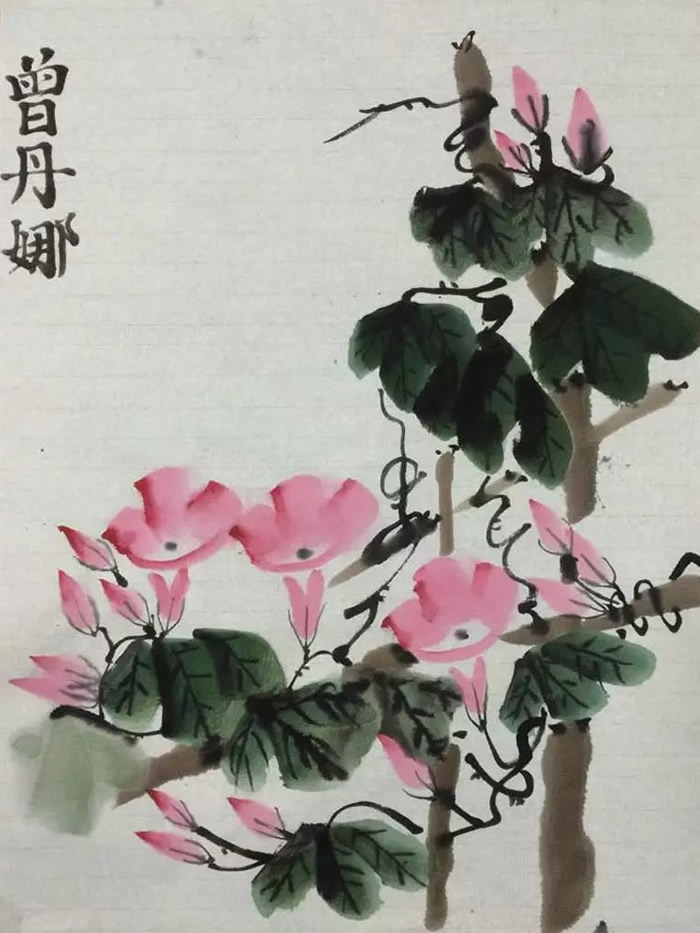 曾丹娜